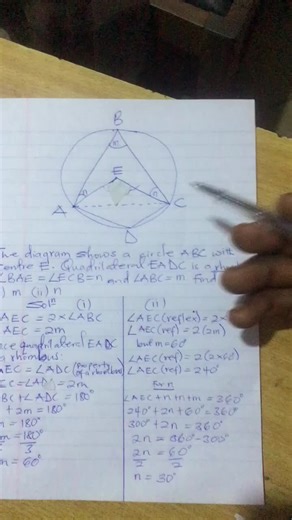 B
m
E
n
n
A
C
D
The diagram shows a circle ABC with
centre E. Quadrilateral EADC is a
∠BAE = ∠ECB = n and ∠ABC = m. Find
m (ii) n
Soln (i)
AEC = 2×∠ABC
AEC = 2m
quadrilateral EADC
rhombus:
AEC = ∠ADC
= 2m
ABC + ∠ADC = 180°
+ 2m = 180°
m = 180°
m = 180°
3
m = 60°
(ii)
∠AEC (reflex) = 2×
∠AEC(ref) = 2(2m)
but m = 60°
∠AEC(ref) = 2(2×60°)
∠AEC(ref) = 240°
for n
∠AEC + n + n + m = 360°
240° + 2n + 60° = 360°
300° + 2n = 360°
2n = 360° - 300°
2n = 60°
2 2
n = 30°